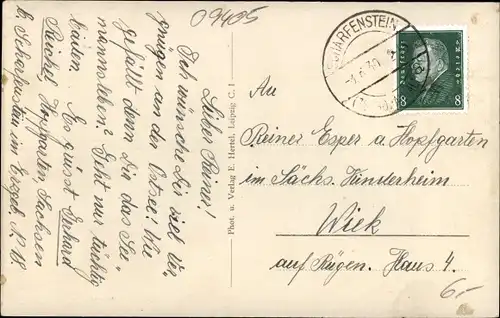 09405
Lieber Reiner!
Ich wünsche Dir viel Ver-
gnügen an der Ostsee! Wie
gefällt denn Dir das See
mannsleben? Geht nur tüchtig
baden. Es grüsst Gerhard
Reichel, Hopfgarten, Sachsen
b. Scharfenstein im Erzgeb. N. 18.
Phot. u. Verlag E. Hertel, Leipzig C. 1
SCHARFENSTEIN
Deutsches Reich
8 8
An
Reiner Esper a. Hopfgarten
im Sächs. Kinderheim
Wiek
auf Rügen. Haus 4.
6,-